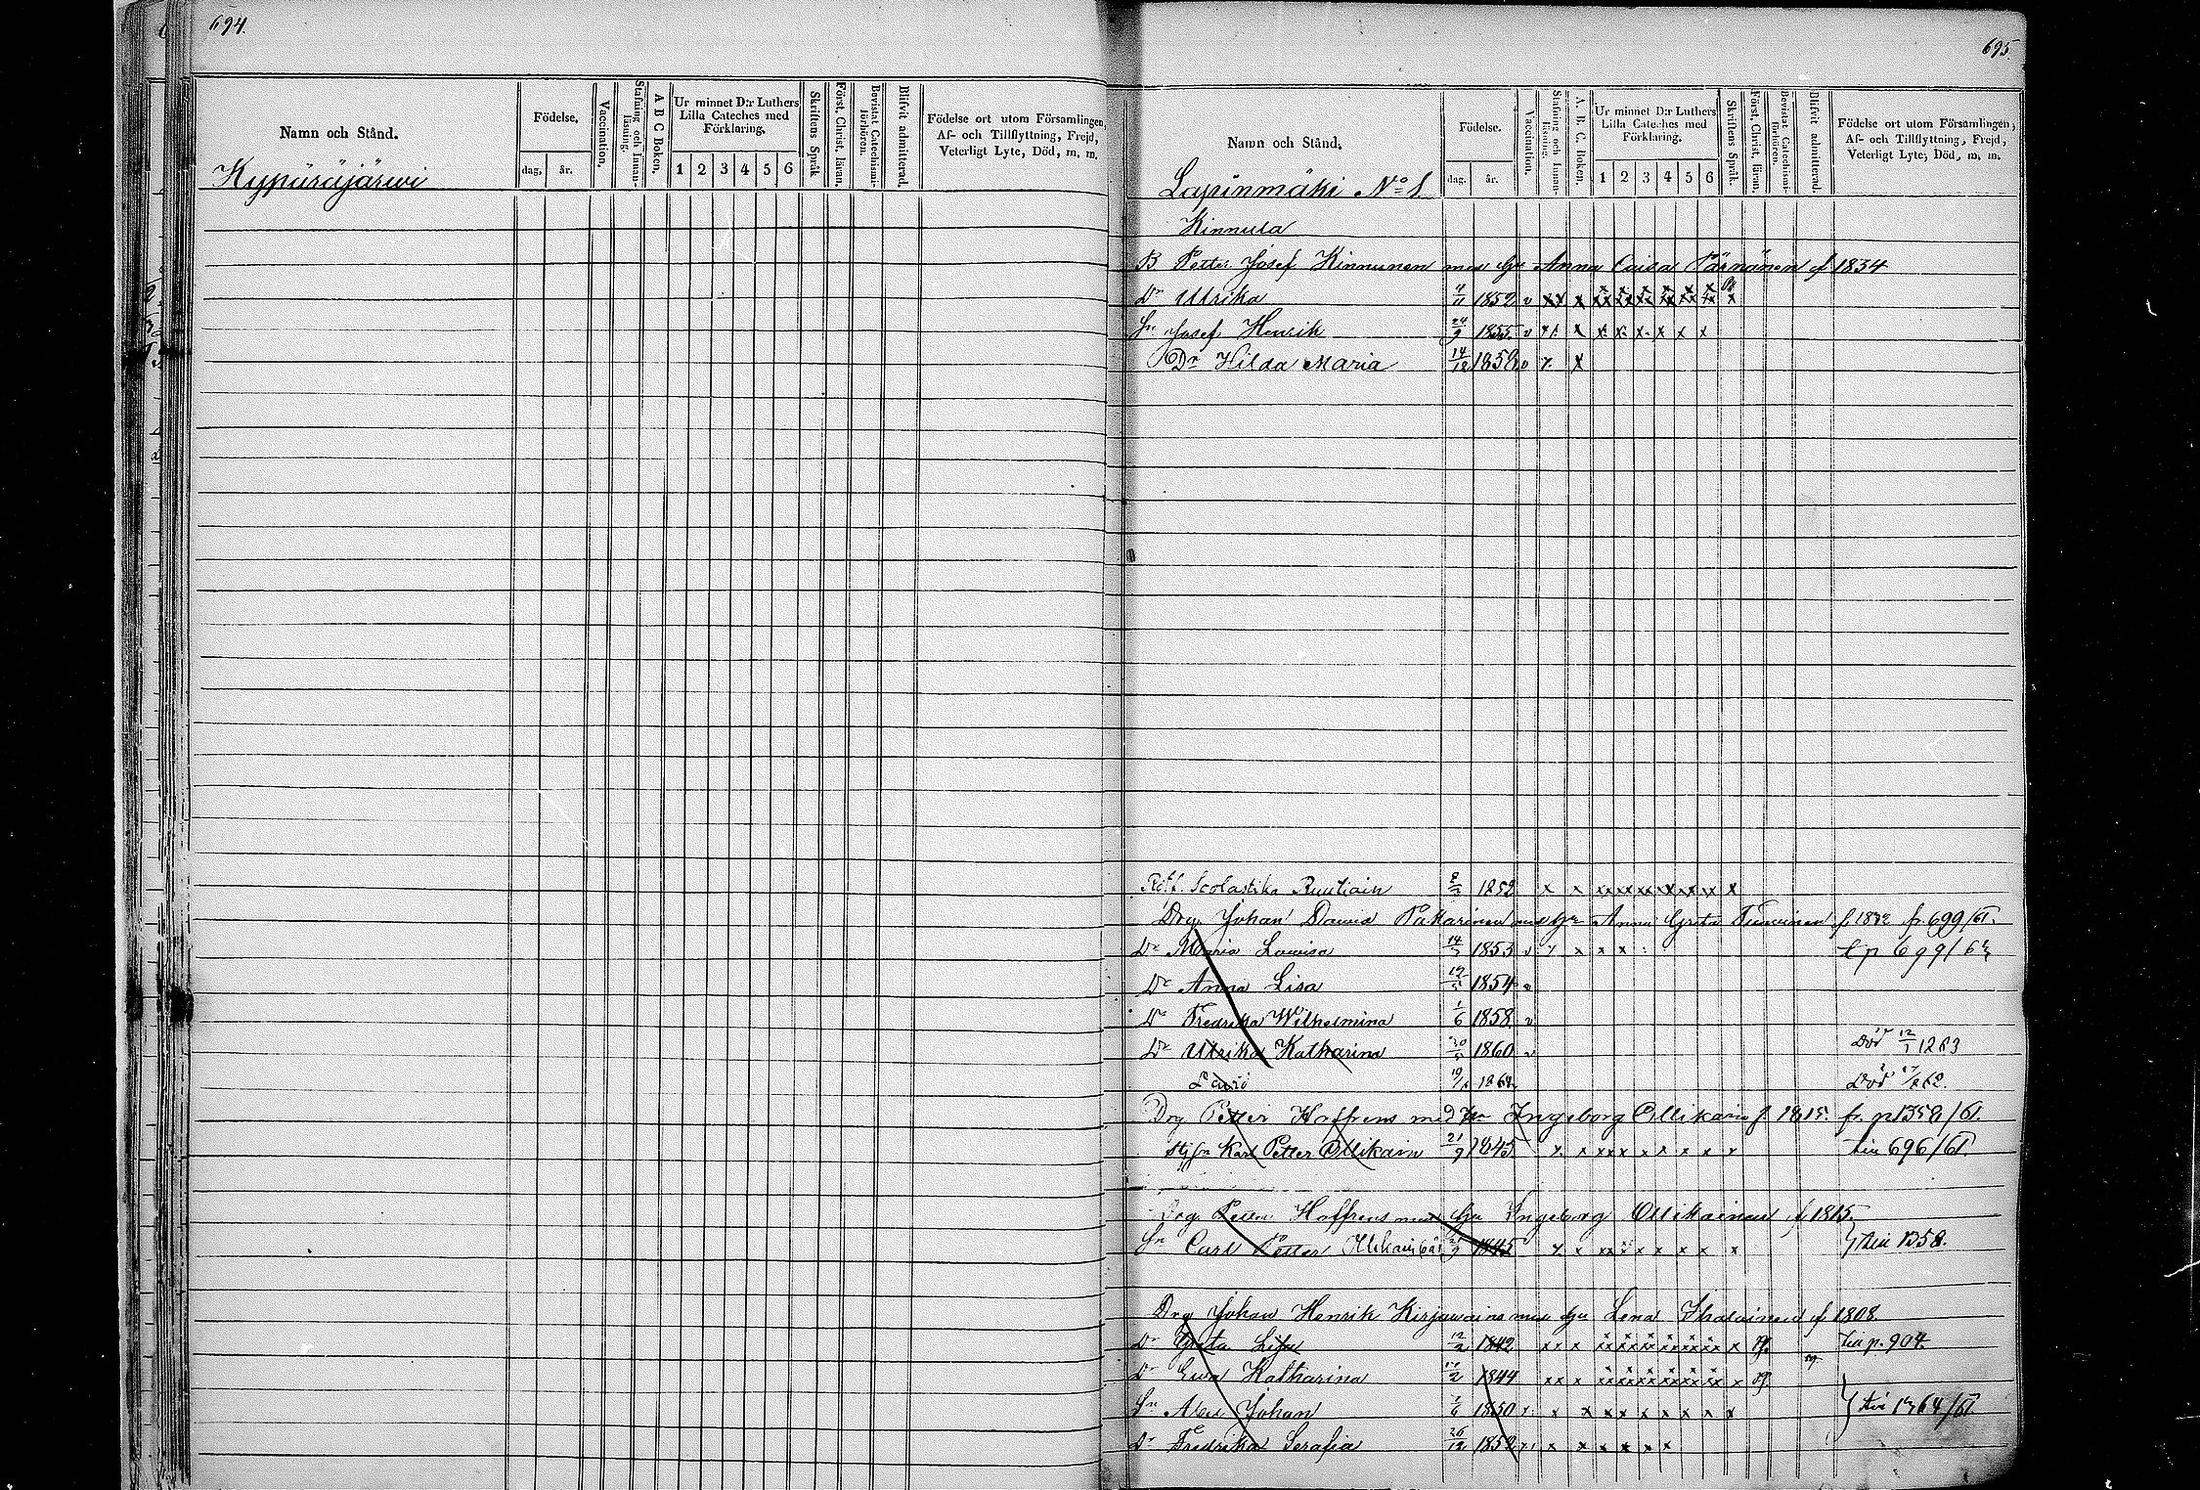 694.
Namn och Stånd.
Födelse.
dag.
år.
Vaccination.
Stafning och Innan-läsning.
A B C Boken.
Ur minnet D:r Luthers Lilla Cateches med Förklaring.
1 2 3 4 5 6
Skriftens Språk
Först. Christ. läran.
Bevistat Catechismi-förhören.
Blifvit admitterad.
Födelse ort utom Församlingen,
Af- och Tillflyttning, Frejd,
Veterligt Lyte, Död, m. m.
Kypäräjärwi
695.
Namn och Stånd.
Födelse.
dag.
år.
Vaccination.
Stafning och Innan-läsning.
A. B. C. Boken.
Ur minnet D:r Luthers Lilla Cateches med Förklaring.
1 2 3 4 5 6
Skriftens Språk.
Först. Christ. läran.
Bevistat Catechismi-förhören.
Blifvit admitterad.
Födelse ort utom Församlingen,
Af- och Tillflyttning, Frejd,
Veterligt Lyte, Död, m. m.
Lapinmäki No 1.
Kinnula
B Petter Josef Kinnunen med hu Anna Caisa Pärnänen f 1834
Dr Ulrika 1852 v
Sn Josef Henrik 24/9 1855 v
Dr Hilda Maria 14/12 1858 v
Scolastika 1852
Drg. Johan David Pakarinen med hu Anna Greta fr. 699/61.
Dr Maria Lovisa 1853 v
Dr Anna Lisa 1854 v
Dr Fredrika Wilhelmina 1/6 1858 v
Dr Ulrika Katharina 1860 v Död
Död
Drg Petter Hoffrens med hu Ingeborg Ollikain f 1815. fr. p 1358/61.
Karl Petter Ollikain 21/9 1845 till 696/61
Drg. Petter Hoffrens med hu Ingeborg Ollikainen f 1815.
Sn Carl Petter 1845 till 1358.
Drg Johan Henrik med hu Lena f 1808.
Dr Greta Lisa 1842 till p. 904.
Dr Ewa Katharina 1844
Sn Abel Johan 1850
Dr Fredrika Serafia 26/12 1852